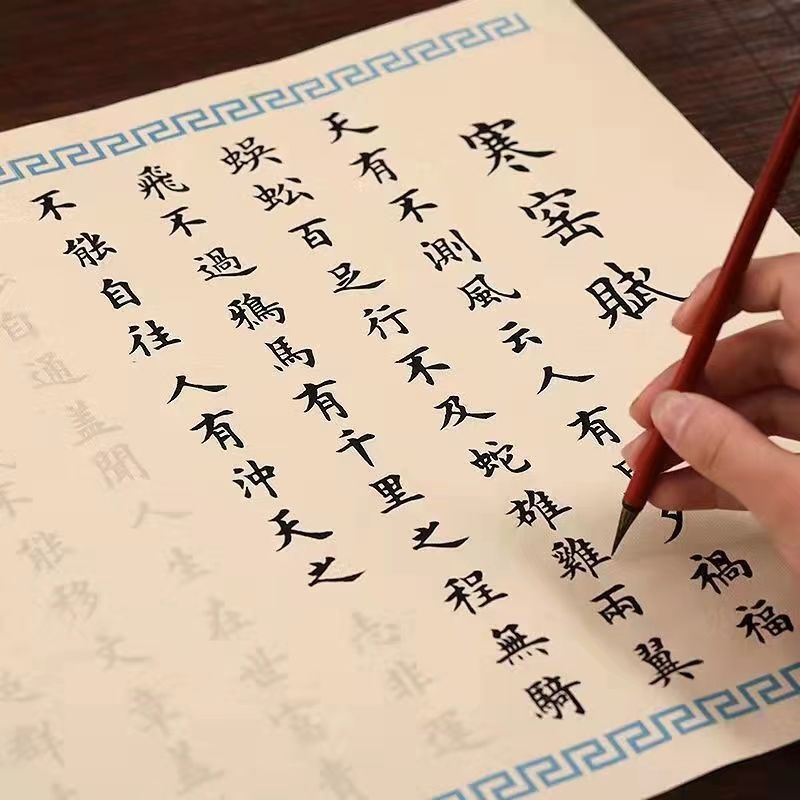 寒窑賦
天有不測風云人有禍福
蜈蚣百足行不及蛇雄雞兩翼
飛不過鴉馬有千里之程無騎
不能自往人有沖天之志非運
自通盖聞人生在世富貴
不能移文章盖